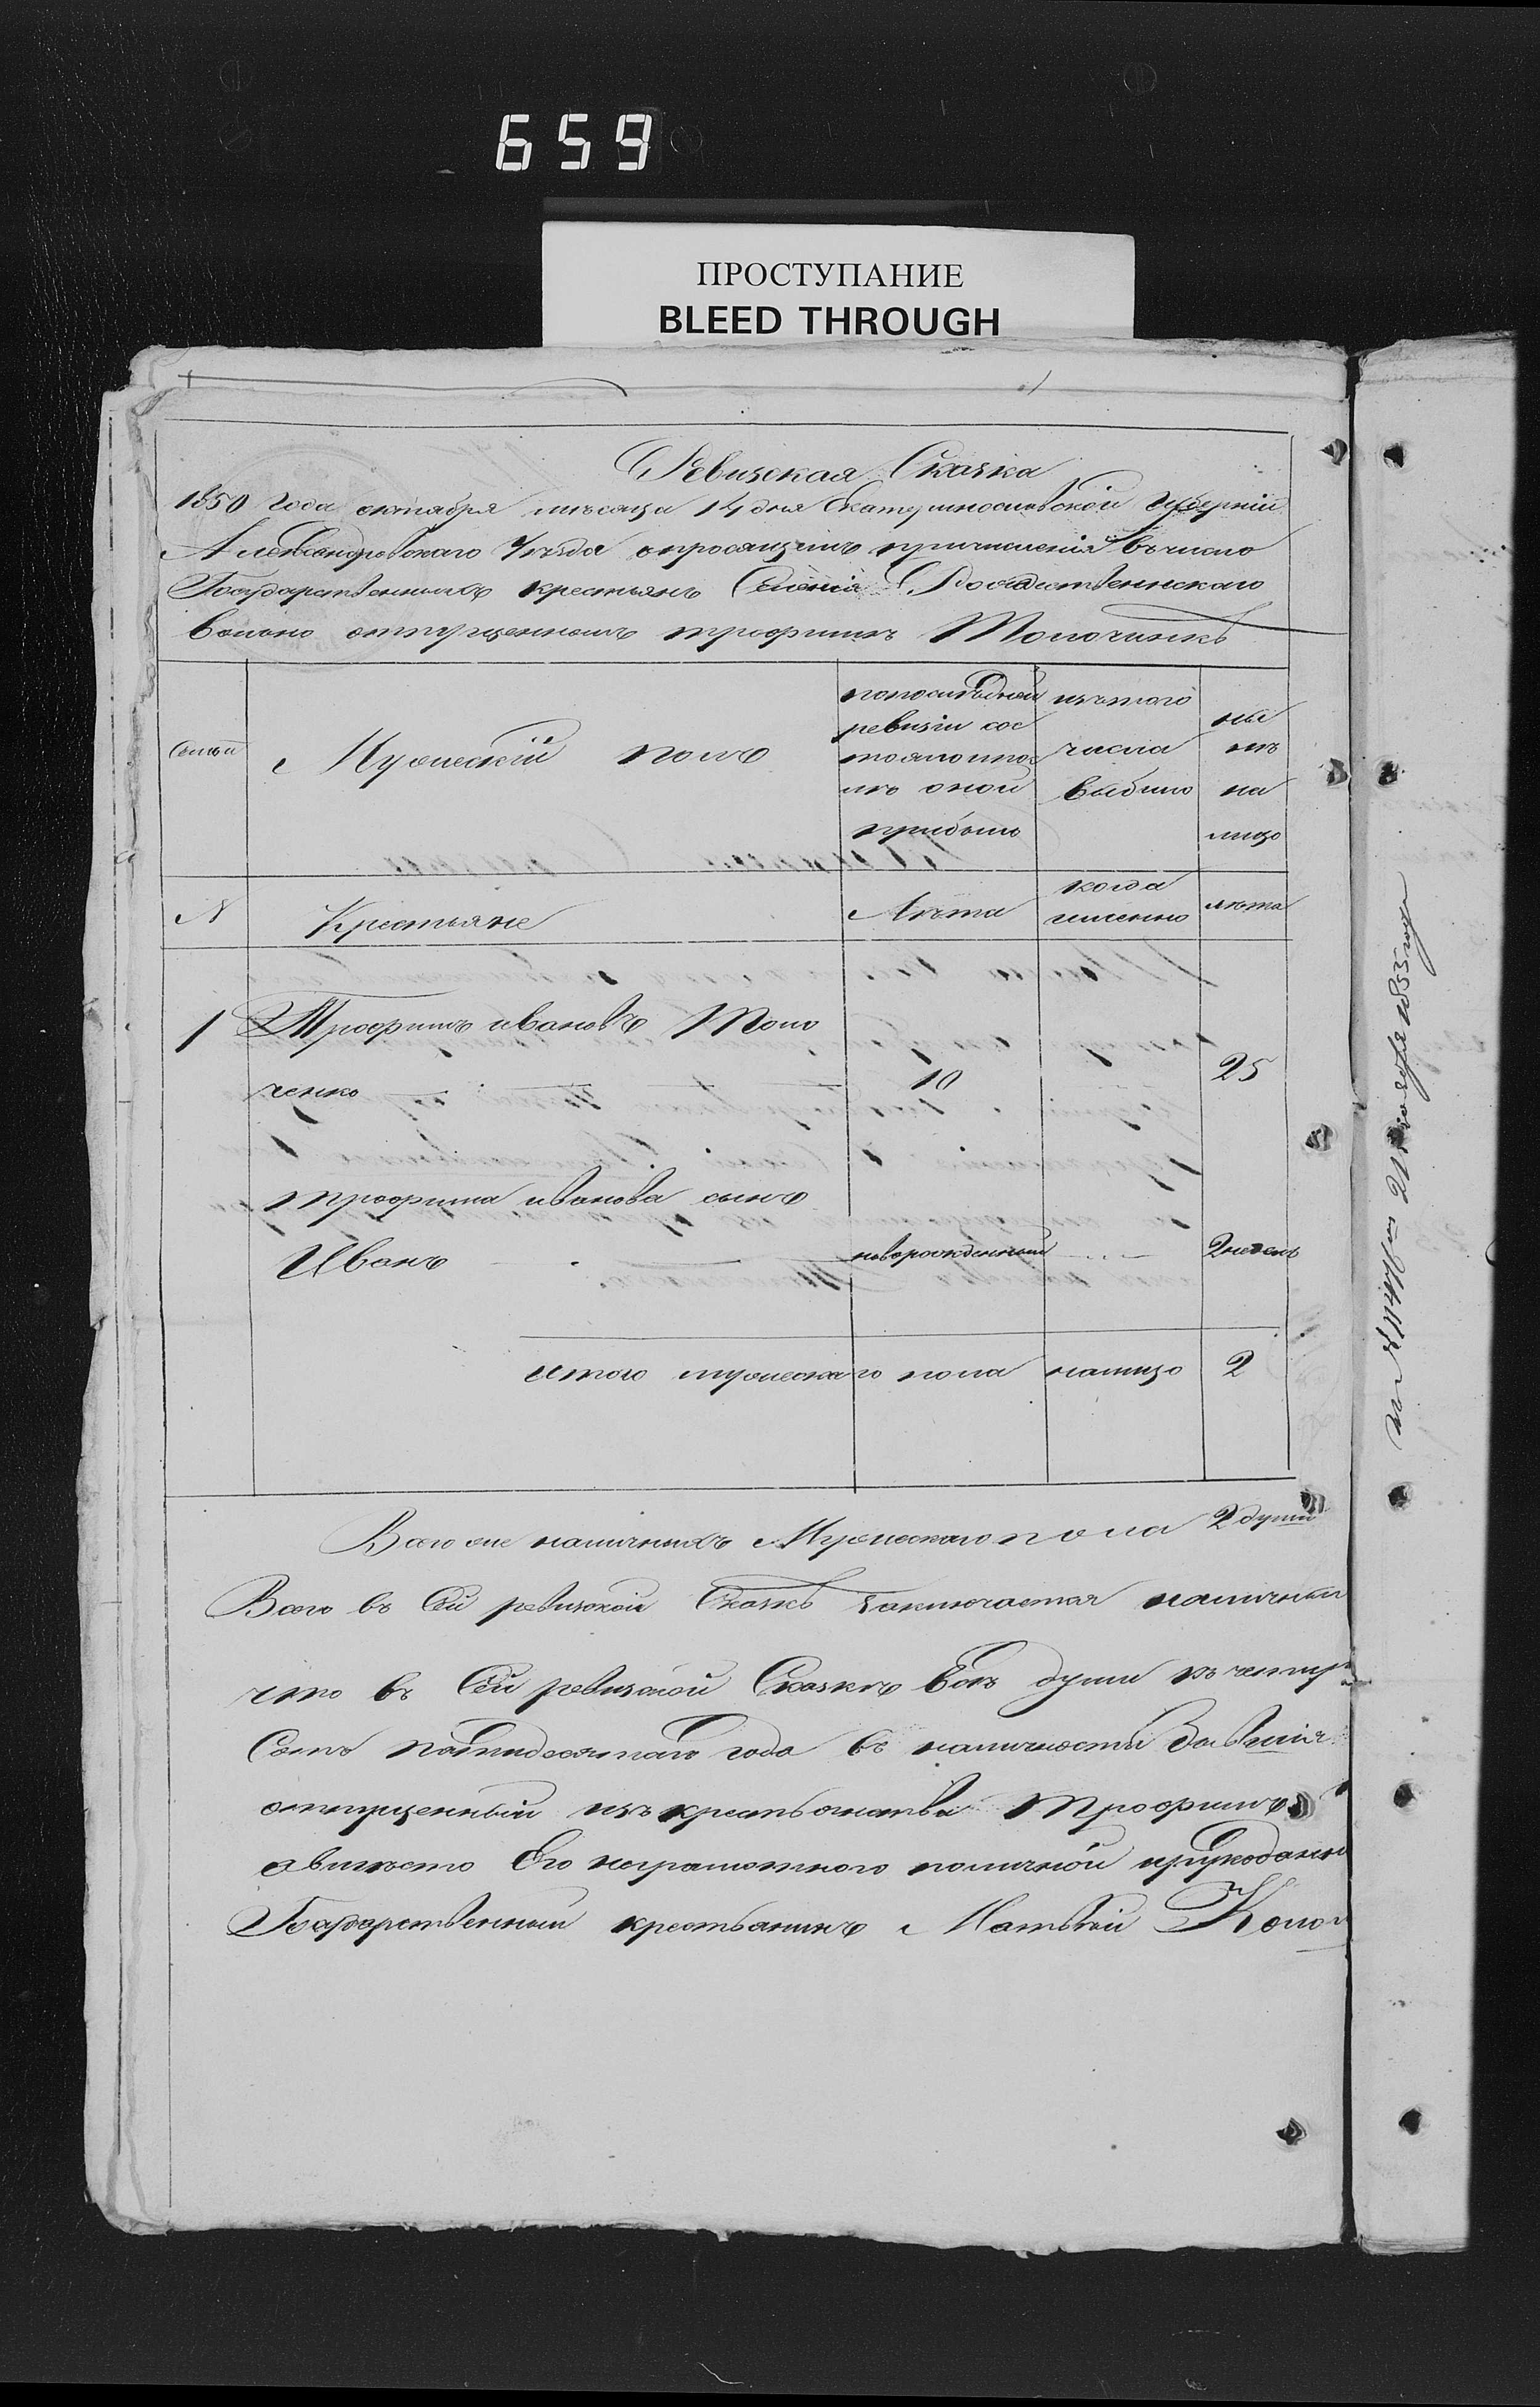 659
ПРОСТУПАНИЕ
BLEED THROUGH
Ревизская Сказка
1850 года октября мѣсяца 14 дня Екатеринославской губерніи
Александровскаго Уѣзда опросящемъ причисленія въ число
Государственныхъ крестьянъ Селенія Рождественнскаго
вольно отпущенномъ трофимѣ Толочинкѣ
Семьи
Мужескій полъ
попослѣдней ревизіи сос тояло и после оной прибыло
изътого числа выбыло
ны нѣ на лицо
N
Крестьяне
Лѣта
когда именно
лѣта
1 Трофимъ ивановъ Толо
ченко 10 25
трофима иванова сынъ
Иванъ новорожденный 2 недель
итого мужескаго пола налицо 2
Всего же наличныхъ Мужескаго пола 2 души
Всего въ Сей ревизской Сказкѣ заключается наличныхъ
что въ Сей ревизской Сказкѣ Всѣ души
Сотъ пятидесятаго года въ наличности
отпущенный изъ крестьянства Трофимъ
авместо Его неграмотного поличной
Государственный крестьянинъ Матвѣй
21 ноября 1855 года